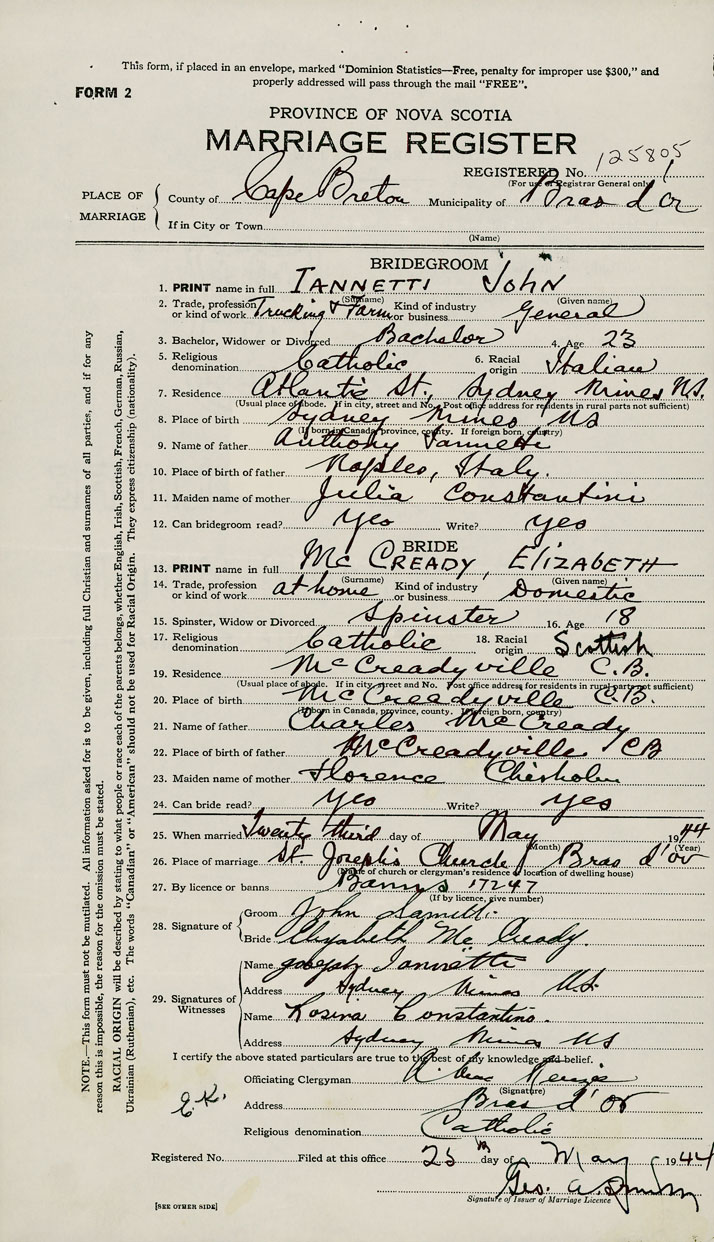 This form, if placed in an envelope, marked "Dominion Statistics—Free, penalty for improper use $300," and
properly addressed will pass through the mail "FREE".
FORM 2
PROVINCE OF NOVA SCOTIA
MARRIAGE REGISTER
REGISTERED No. 125805
(For use of Registrar General only)
PLACE OF MARRIAGE
County of Cape Breton Municipality of Bras d'Or
If in City or Town
(Name)
BRIDEGROOM
1. PRINT name in full IANNETTI JOHN
(Surname) (Given name)
2. Trade, profession or kind of work Trucking & Farm Kind of industry or business General
3. Bachelor, Widower or Divorced Bachelor 4. Age 23
5. Religious denomination Catholic 6. Racial origin Italian
7. Residence Atlantic St, Sydney Mines N.S.
(Usual place of abode. If in city, street and No. Post office address for residents in rural parts not sufficient)
8. Place of birth Sydney Mines NS
(If born in Canada, province, county. If foreign born, country)
9. Name of father Anthony Iannetti
10. Place of birth of father Naples, Italy.
11. Maiden name of mother Julia Constantini
12. Can bridegroom read? yes Write? yes
BRIDE
13. PRINT name in full McCREADY, ELIZABETH
(Surname) (Given name)
14. Trade, profession or kind of work at home Kind of industry or business Domestic
15. Spinster, Widow or Divorced Spinster 16. Age 18
17. Religious denomination Catholic 18. Racial origin Scottish
19. Residence McCreadyville C.B.
(Usual place of abode. If in city, street and No. Post office address for residents in rural parts not sufficient)
20. Place of birth McCreadyville C.B.
(If born in Canada, province, county. If foreign born, country)
21. Name of father Charles McCready
22. Place of birth of father McCreadyville CB
23. Maiden name of mother Florence Chisholm
24. Can bride read? yes Write? yes
25. When married Twenty third day of May 1944
(Month) (Year)
26. Place of marriage St. Joseph's Church, Bras d'Or
(Name of church or clergyman's residence or location of dwelling house)
27. By licence or banns Banns 17247
(If by licence, give number)
28. Signature of
Groom John
Bride Elizabeth McCready.
29. Signatures of Witnesses
Name Joseph Iannetti
Address Sydney Mines N.S.
Name Rosina Constantino.
Address Sydney Mines NS
I certify the above stated particulars are true to the best of my knowledge and belief.
Officiating Clergyman
(Signature)
E.K.
Address Bras d'Or
Religious denomination Catholic
Registered No. Filed at this office 25th day of May 1944
Geo. A.
Signature of Issuer of Marriage Licence
[SEE OTHER SIDE]
NOTE.—This form must not be mutilated. All information asked for is to be given, including full Christian and surnames of all parties, and if for any
reason this is impossible, the reason for the omission must be stated.
RACIAL ORIGIN will be described by stating to what people or race each of the parents belongs, whether English, Irish, Scottish, French, German, Russian,
Ukrainian (Ruthenian), etc. The words "Canadian" or "American" should not be used for Racial Origin. They express citizenship (nationality).